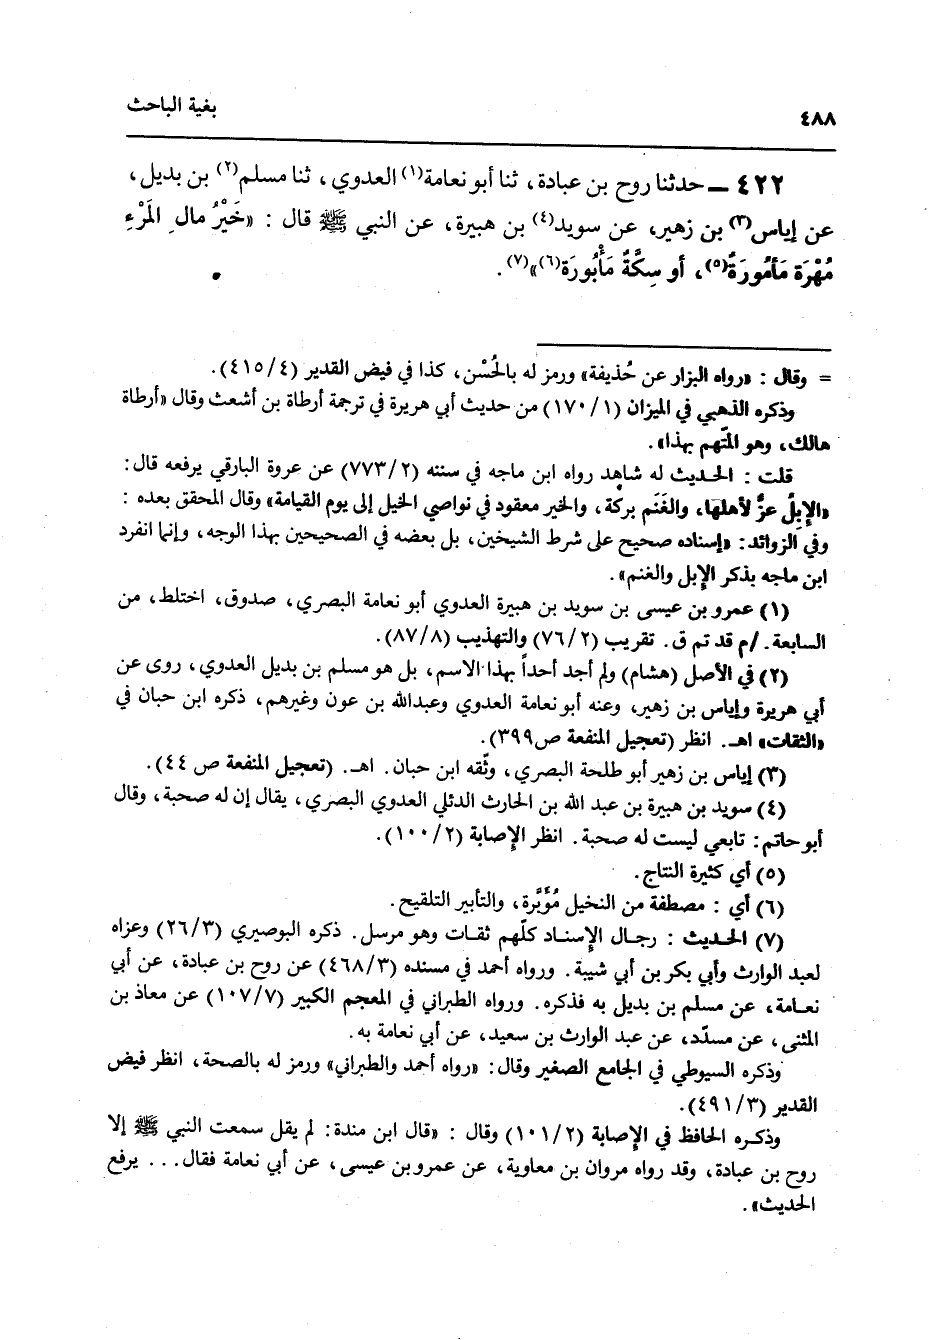 ٤٨٨
بغية الباحث
٤٢٢ ــ حدثنا روح بن عبادة، ثنا أبو نعامة(١) العدوي، ثنا مسلم(٢) بن بديل،
عن إياس(٣) بن زهير، عن سويد(٤) بن هبيرة، عن النبي ﷺ قال : «خَيْرُ مال المَرْءِ
مُهْرَة مَأمُورَةٌ(٥)، أو سِكَّةٌ مَأْبُورَة(٦)»(٧).
= وقال : «رواه البزار عن حُذيفة» ورمز له بالحُسْن، كذا في فيض القدير (٤١٥/٤).
وذكره الذهبي في الميزان (١٧٠/١) من حديث أبي هريرة في ترجمة أرطاة بن أشعث وقال «أرطاة
هالك، وهو المتّهم بهذا».
قلت : الحديث له شاهد رواه ابن ماجه في سننه (٧٧٣/٢) عن عروة البارقي يرفعه قال:
«الإِبلُ عزٌّ لأهلها، والغَنَم بركة، والخير معقود في نواصي الخيل إلى يوم القيامة» وقال المحقق بعده :
وفي الزوائد: «إسناده صحيح على شرط الشيخين، بل بعضه في الصحيحين بهذا الوجه، وإنما انفرد
ابن ماجه بذكر الإبل والغنم».
(١) عمرو بن عيسى بن سويد بن هبيرة العدوي أبو نعامة البصري، صدوق، اختلط، من
السابعة. /م قد تم ق. تقريب (٧٦/٢) والتهذيب (٨٧/٨).
(٢) في الأصل (هشام) ولم أجد أحداً بهذا الاسم، بل هو مسلم بن بديل العدوي، روى عن
أبي هريرة وإياس بن زهير، وعنه أبو نعامة العدوي وعبدالله بن عون وغيرهم، ذكره ابن حبان في
«الثقات» اهـ. انظر (تعجيل المنفعة ص٣٩٩).
(٣) إياس بن زهير أبو طلحة البصري، وثّقه ابن حبان. اهـ. (تعجيل المنفعة ص ٤٤).
(٤) سويد بن هبيرة بن عبد الله بن الحارث الدئلي العدوي البصري، يقال إن له صحبة، وقال
أبو حاتم: تابعي ليست له صحبة. انظر الإصابة (١٠٠/٢).
(٥) أي كثيرة النتاج.
(٦) أي : مصطفة من النخيل مُؤَبَّرة، والتأبير التلقيح.
(٧) الحديث : رجال الإسناد كلّهم ثقات وهو مرسل. ذكره البوصيري (٢٦/٣) وعزاه
لعبد الوارث وأبي بكر بن أبي شيبة. ورواه أحمد في مسنده (٤٦٨/٣) عن روح بن عبادة، عن أبي
نعامة، عن مسلم بن بديل به فذكره. ورواه الطبراني في المعجم الكبير (١٠٧/٧) عن معاذ بن
المثنى، عن مسدّد، عن عبد الوارث بن سعيد، عن أبي نعامة به.
وذكره السيوطي في الجامع الصغير وقال: «رواه أحمد والطبراني» ورمز له بالصحة، انظر فيض
القدير (٤٩١/٣).
وذكره الحافظ في الإصابة (١٠١/٢) وقال : «قال ابن مندة: لم يقل سمعت النبي ﷺ إلا
روح بن عبادة، وقد رواه مروان بن معاوية، عن عمرو بن عيسى، عن أبي نعامة فقال... يرفع
الحديث».